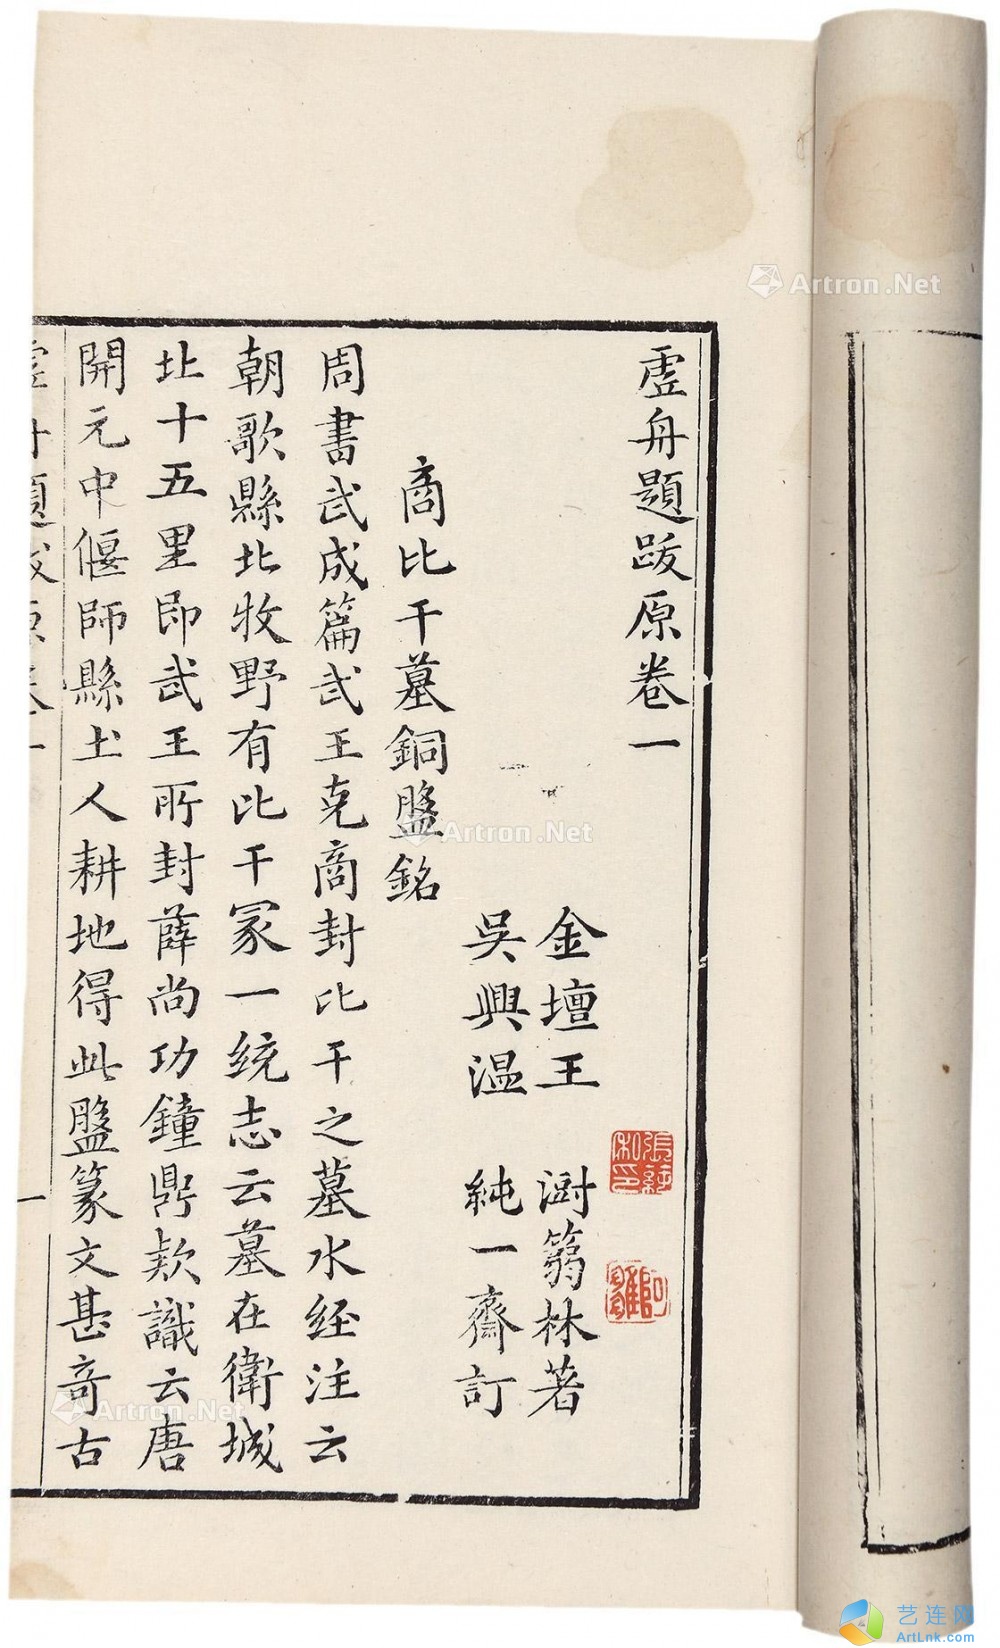 虛舟題跋原卷一
金壇王　澍篛林著
吳興温　純一齋訂
商比干墓銅盤銘
周書武成篇武王克商封比干之墓水経注云
朝歌縣北牧野有比干冢一統志云墓在衛城
北十五里即武王所封薛尚功鐘鼎欵識云唐
開元中偃師縣土人耕地得此盤篆文甚竒古
虛舟題跋原卷一
一
Artron.Net
Artron.Net
Artron.Net
艺连网
ArtLnk.com